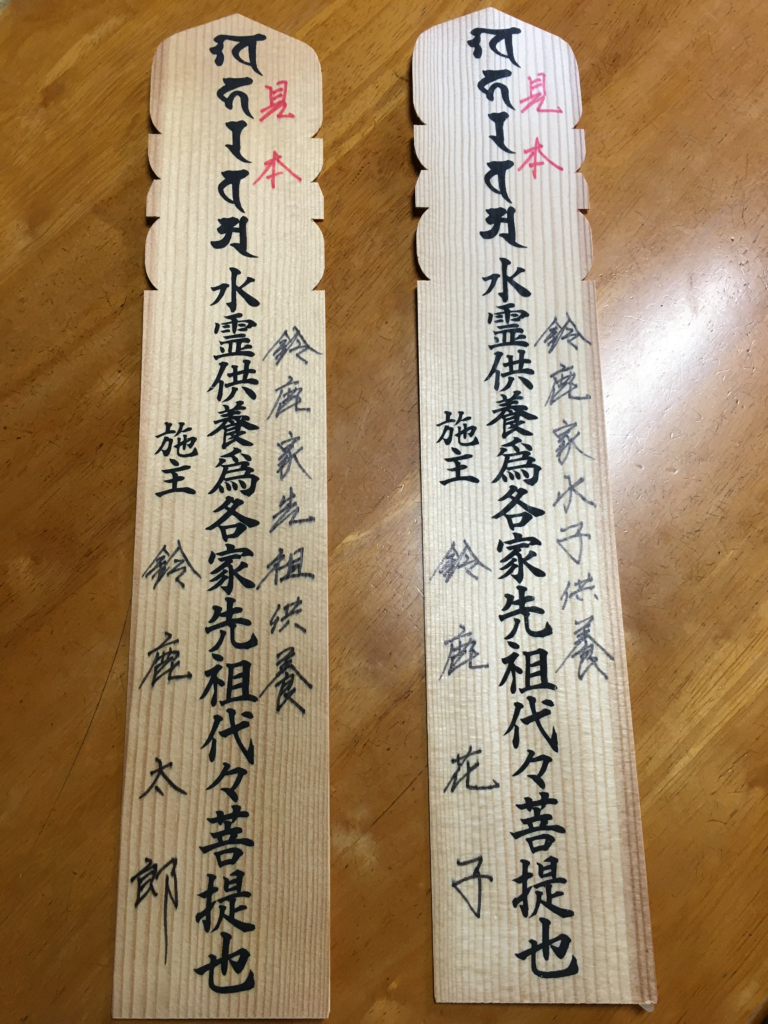 見本
鈴鹿家水子供養
𑖏𑖮𑖨𑖪𑖀 水霊供養爲各家先祖代々菩提也
施主 鈴鹿花子
見本
鈴鹿家先祖供養
𑖏𑖮𑖨𑖪𑖀 水霊供養爲各家先祖代々菩提也
施主 鈴鹿太郎